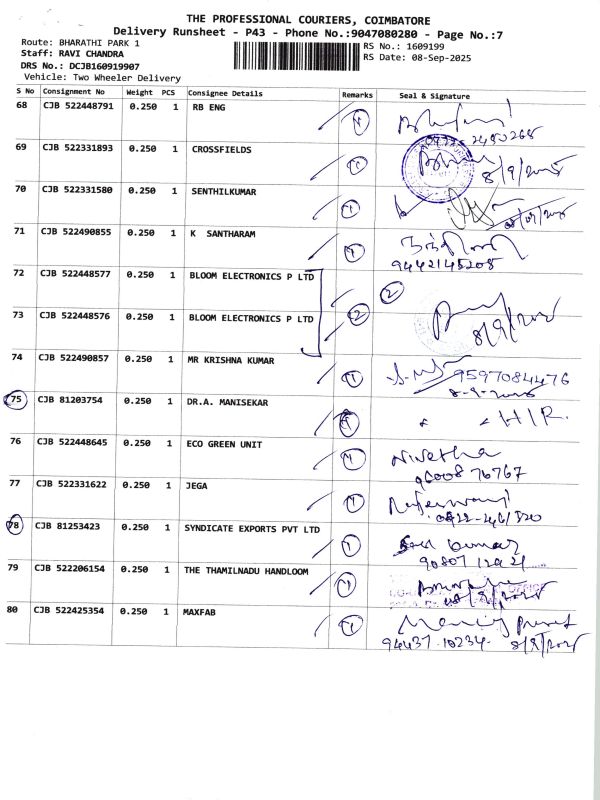 THE PROFESSIONAL COURIERS, COIMBATORE
Delivery Runsheet - P43 - Phone No.:9047080280 - Page No.:7
Route: BHARATHI PARK 1
Staff: RAVI CHANDRA
DRS No.: DCJB160919907
Vehicle: Two Wheeler Delivery
RS No.: 1609199
RS Date: 08-Sep-2025
S No Consignment No Weight PCS Consignee Details Remarks Seal & Signature
68 CJB 522448791 0.250 1 RB ENG 1
69 CJB 522331893 0.250 1 CROSSFIELDS 1 8/9/2025
70 CJB 522331580 0.250 1 SENTHILKUMAR 1
71 CJB 522490855 0.250 1 K SANTHARAM 1
9442145208
72 CJB 522448577 0.250 1 BLOOM ELECTRONICS P LTD 2
73 CJB 522448576 0.250 1 BLOOM ELECTRONICS P LTD 2
8/9/2025
74 CJB 522490857 0.250 1 MR KRISHNA KUMAR 1 9597084476
8-9-2025
75 CJB 81203754 0.250 1 DR.A. MANISEKAR 1 H/R.
76 CJB 522448645 0.250 1 ECO GREEN UNIT 1 Nivetha
96008 76767
77 CJB 522331622 0.250 1 JEGA 1 Rajeswari
78 CJB 81253423 0.250 1 SYNDICATE EXPORTS PVT LTD 1
79 CJB 522206154 0.250 1 THE THAMILNADU HANDLOOM 1
80 CJB 522425354 0.250 1 MAXFAB 1
94437 10234 8/9/2025